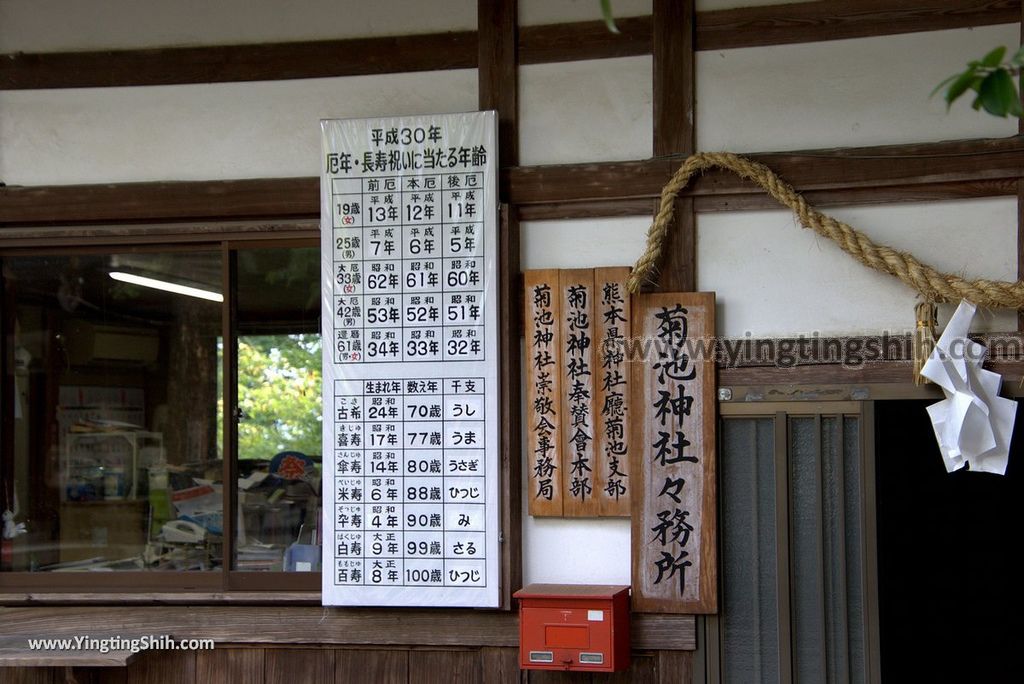 平成30年
厄年・長寿祝いに当たる年齢
前厄 本厄 後厄
19歳(女) 平成13年 平成12年 平成11年
25歳(男) 平成7年 平成6年 平成5年
大厄33歳(女) 昭和62年 昭和61年 昭和60年
大厄42歳(男) 昭和53年 昭和52年 昭和51年
還暦61歳(男・女) 昭和34年 昭和33年 昭和32年
生まれ年 数え年 干支
こき
古希 昭和24年 70歳 うし
きじゅ
喜寿 昭和17年 77歳 うま
さんじゅ
傘寿 昭和14年 80歳 うさぎ
べいじゅ
米寿 昭和6年 88歳 ひつじ
そつじゅ
卒寿 昭和4年 90歳 み
はくじゅ
白寿 大正9年 99歳 さる
ももじゅ
百寿 大正8年 100歳 ひつじ
熊本県神社廳菊池支部
菊池神社奉賛會本部
菊池神社崇敬会事務局
菊池神社々務所
www.YingtingShih.com
www.yingtingshih.com